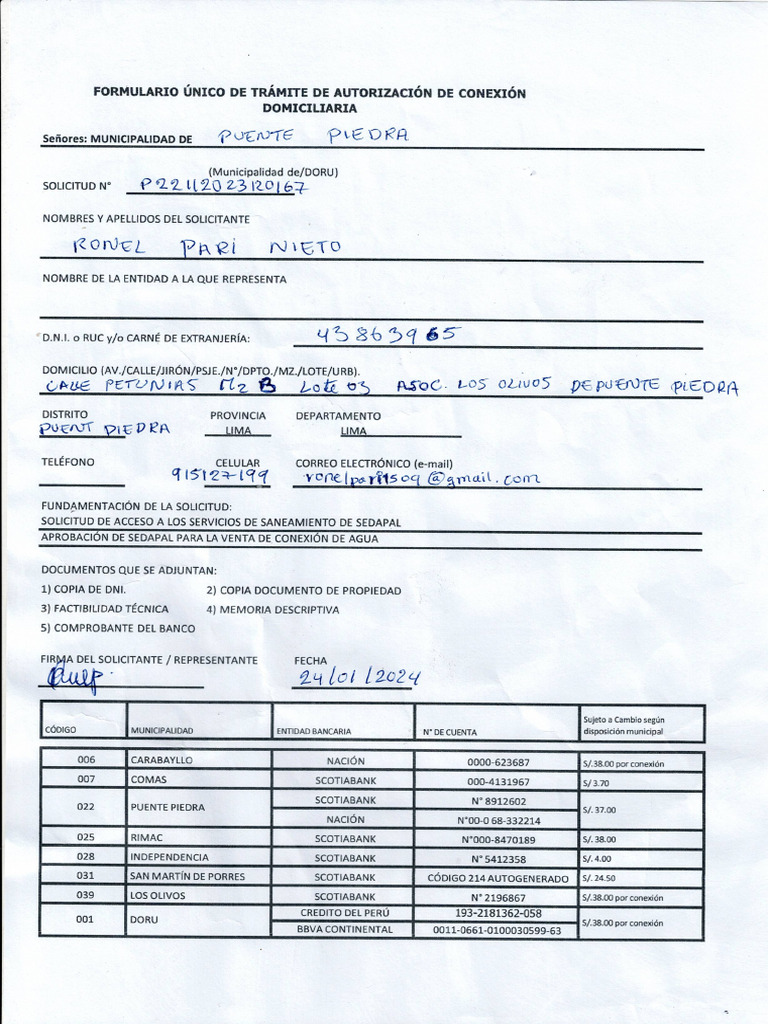 FORMULARIO ÚNICO DE TRÁMITE DE AUTORIZACIÓN DE CONEXIÓN
DOMICILIARIA
Señores: MUNICIPALIDAD DE PUENTE PIEDRA
(Municipalidad de/DORU)
SOLICITUD N° P22112023120167
NOMBRES Y APELLIDOS DEL SOLICITANTE
RONEL PARI NIETO
NOMBRE DE LA ENTIDAD A LA QUE REPRESENTA
D.N.I. o RUC y/o CARNÉ DE EXTRANJERÍA: 43863965
DOMICILIO (AV./CALLE/JIRÓN/PSJE./N°/DPTO./MZ./LOTE/URB).
CALLE PETUNIAS MZ B LOTE 03 ASOC. LOS OLIVOS DE PUENTE PIEDRA
DISTRITO PROVINCIA DEPARTAMENTO
PUENT PIEDRA LIMA LIMA
TELÉFONO CELULAR CORREO ELECTRÓNICO (e-mail)
915127199 @gmail.com
FUNDAMENTACIÓN DE LA SOLICITUD:
SOLICITUD DE ACCESO A LOS SERVICIOS DE SANEAMIENTO DE SEDAPAL
APROBACIÓN DE SEDAPAL PARA LA VENTA DE CONEXIÓN DE AGUA
DOCUMENTOS QUE SE ADJUNTAN:
1) COPIA DE DNI. 2) COPIA DOCUMENTO DE PROPIEDAD
3) FACTIBILIDAD TÉCNICA 4) MEMORIA DESCRIPTIVA
5) COMPROBANTE DEL BANCO
FIRMA DEL SOLICITANTE / REPRESENTANTE FECHA
24/01/2024
CÓDIGO MUNICIPALIDAD ENTIDAD BANCARIA N° DE CUENTA Sujeto a Cambio según
disposición municipal
006 CARABAYLLO NACIÓN 0000-623687 S/.38.00 por conexión
007 COMAS SCOTIABANK 000-4131967 S/ 3.70
022 PUENTE PIEDRA SCOTIABANK N° 8912602 S/. 37.00
NACIÓN N°00-0 68-332214
025 RIMAC SCOTIABANK N°000-8470189 S/. 38.00
028 INDEPENDENCIA SCOTIABANK N° 5412358 S/. 4.00
031 SAN MARTÍN DE PORRES SCOTIABANK CÓDIGO 214 AUTOGENERADO S/. 24.50
039 LOS OLIVOS SCOTIABANK N° 2196867 S/.38.00 por conexión
001 DORU CREDITO DEL PERÚ 193-2181362-058 S/.38.00 por conexión
BBVA CONTINENTAL 0011-0661-0100030599-63